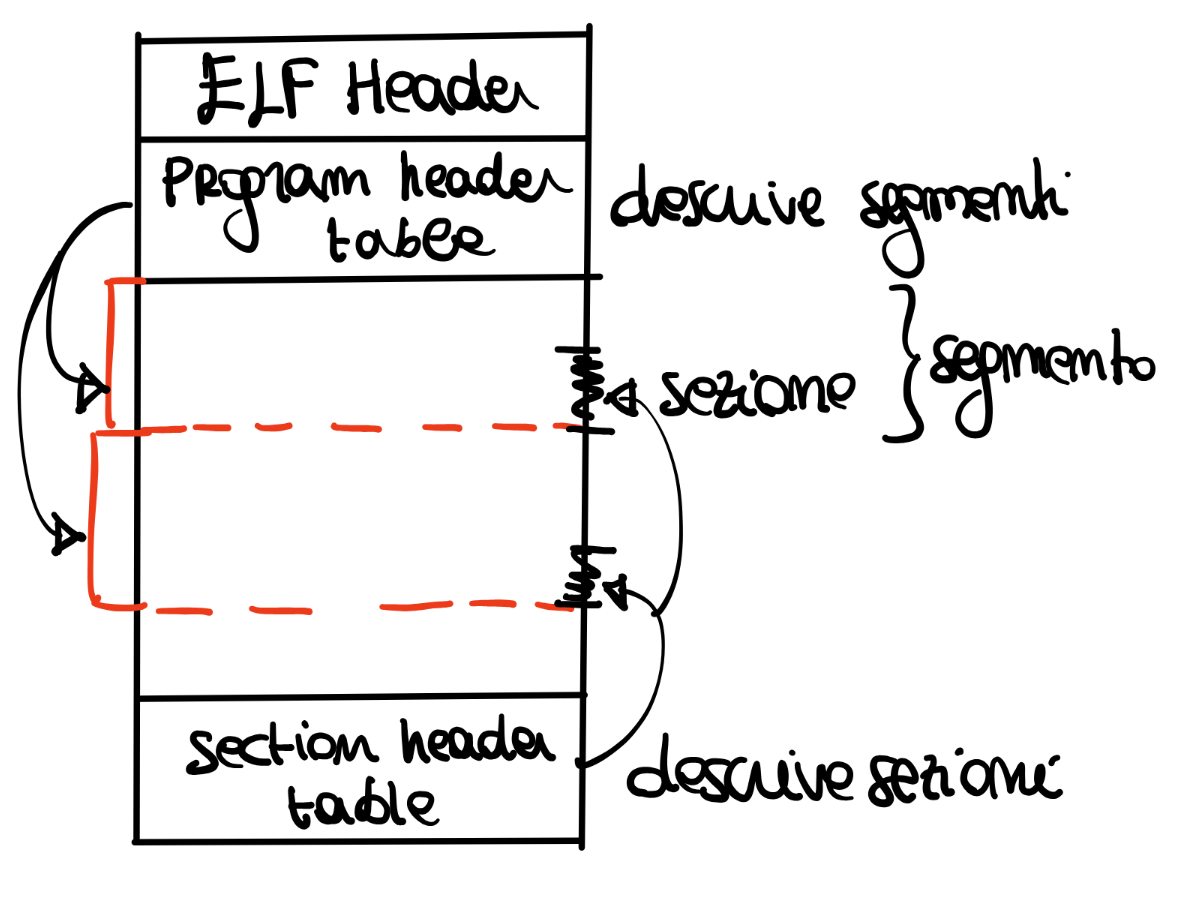 ELF Header
Program header
table
descrive segmenti
sezione
segmento
section header
table
descrive sezioni